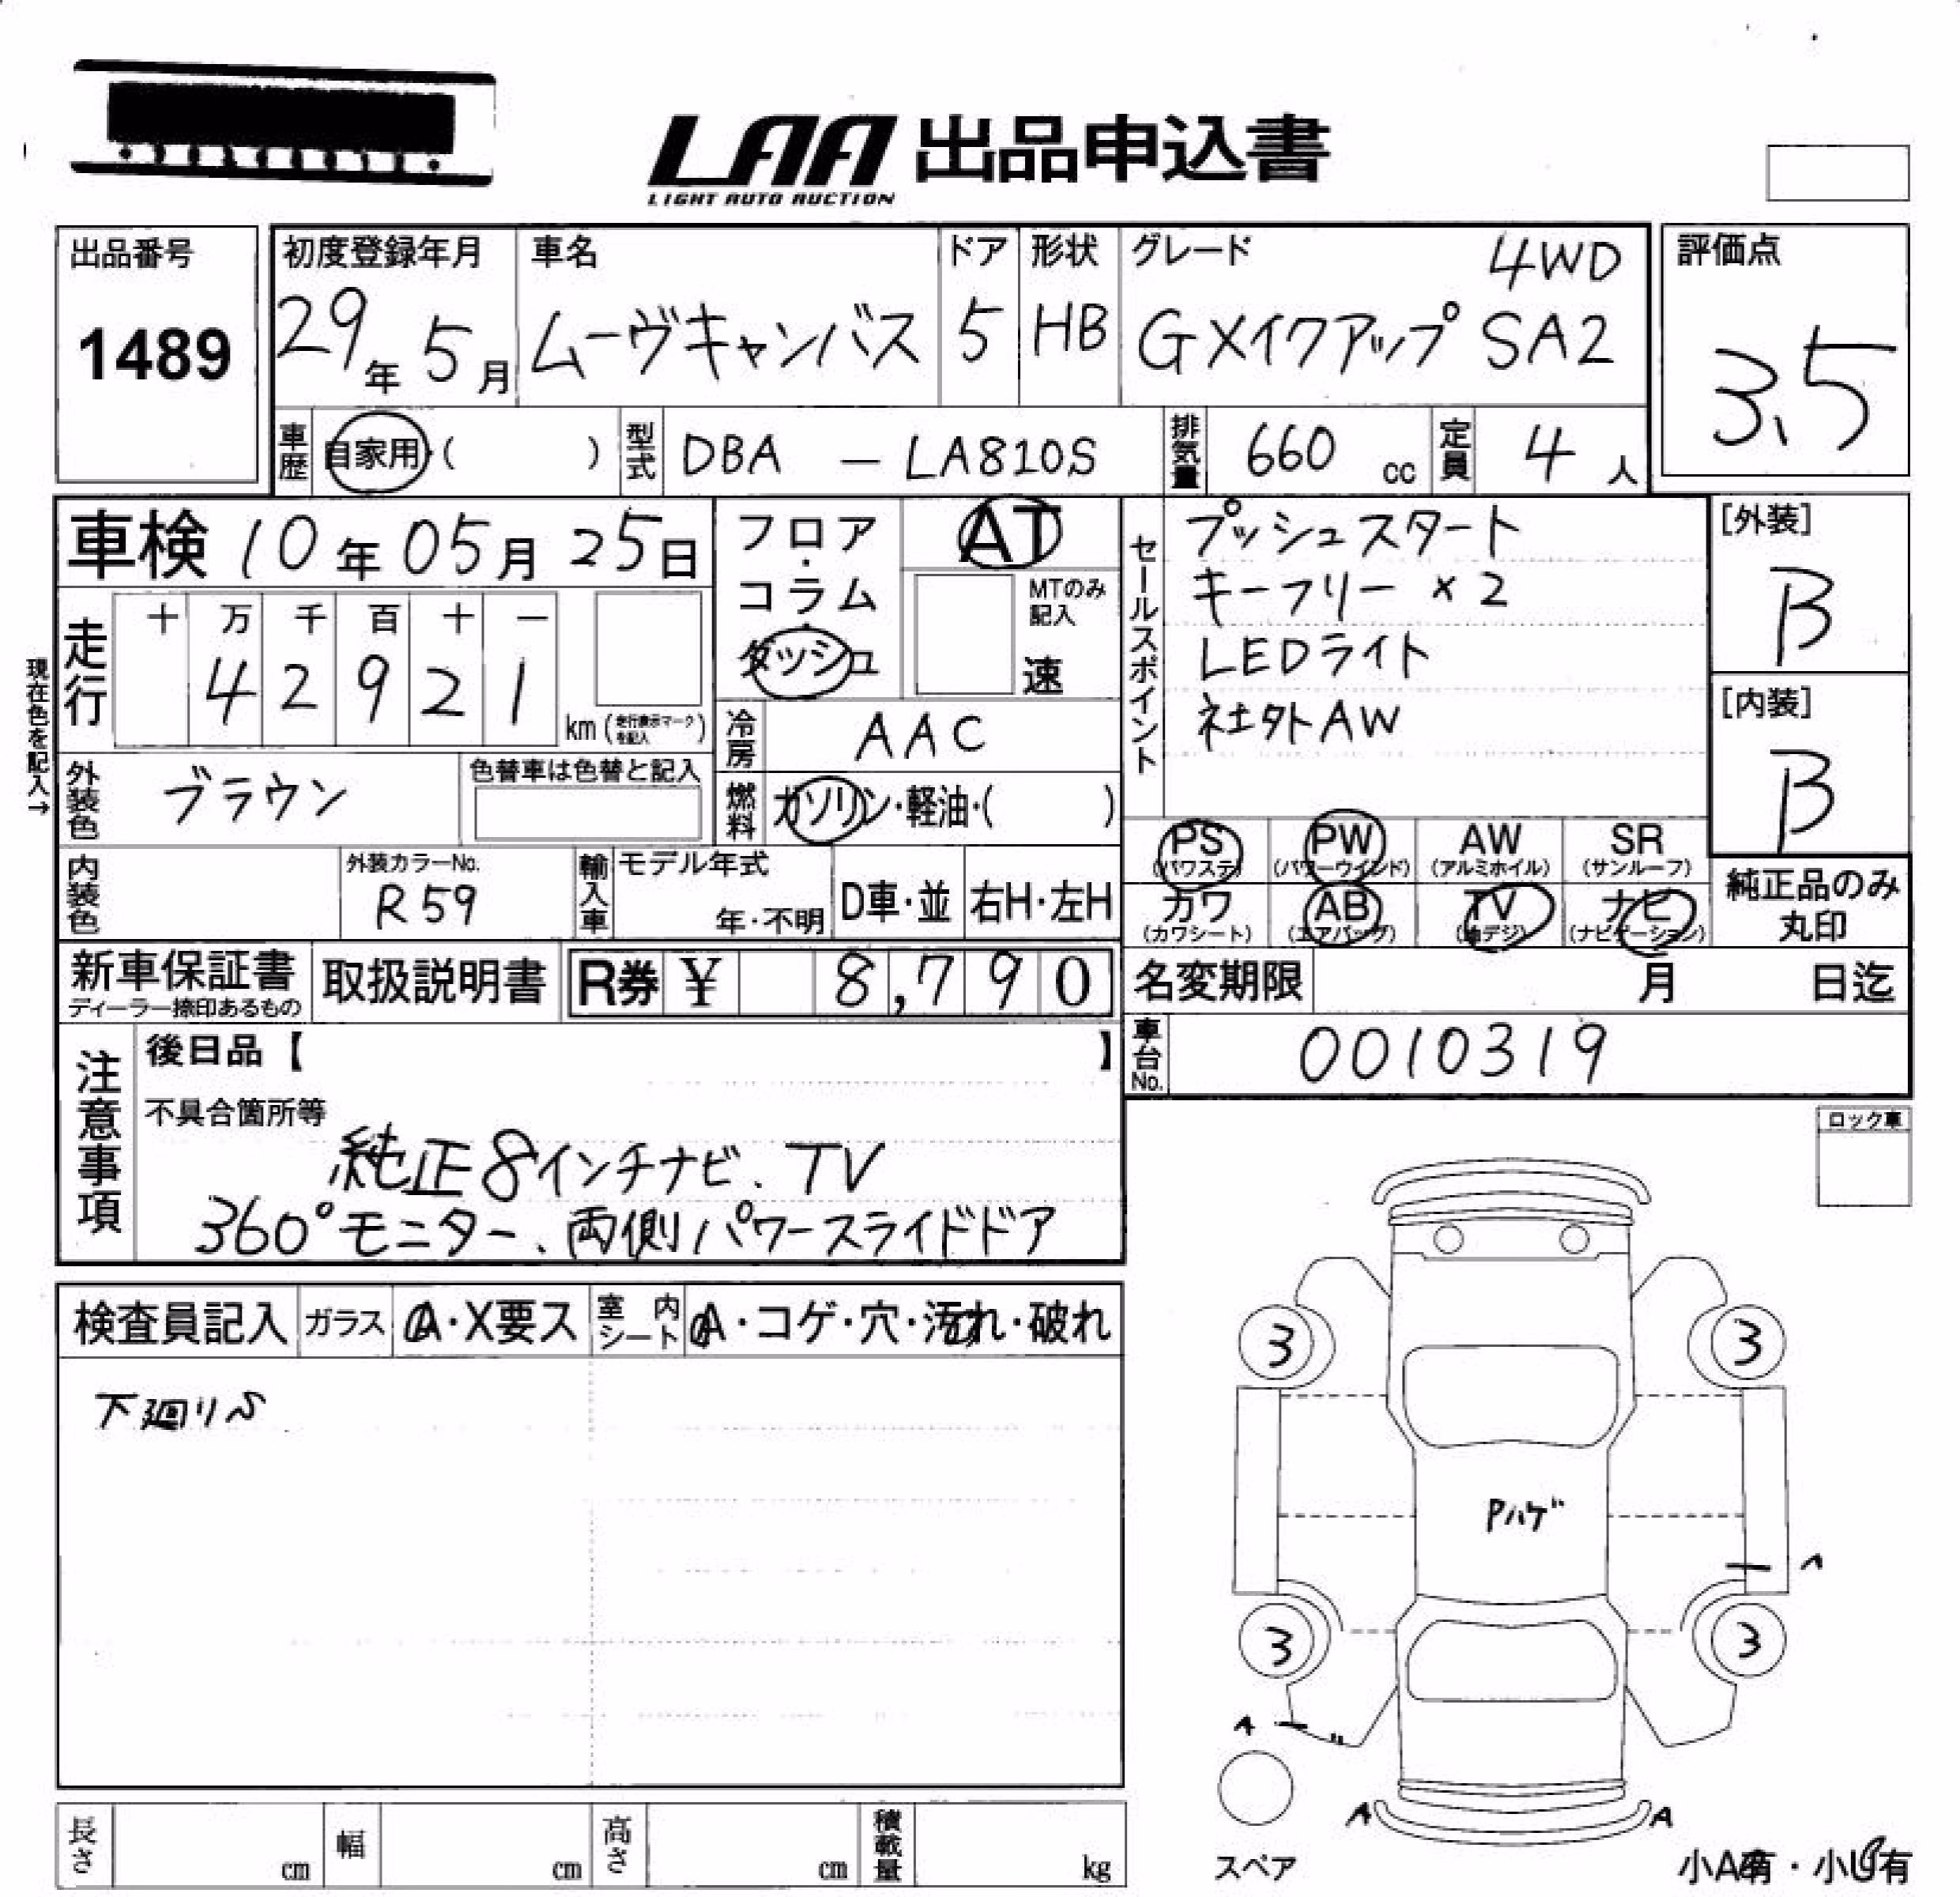 LAA 出品申込書
LIGHT AUTO AUCTION
出品番号
1489
初度登録年月
29年 5月
車名
ムーヴキャンバス
ドア
5
形状
HB
グレード
4WD
GXイクアップ SA2
評価点
3.5
車歴 自家用・( )
型式 DBA － LA810S
排気量 660 cc
定員 4 人
車検 10年 05月 25日
フロア・コラム・ダッシュ
AT
MTのみ記入
速
セールスポイント
プッシュスタート
キーフリー ×2
LEDライト
社外AW
[外装]
B
[内装]
B
現在色を記入→
走行
十 万 千 百 十 一
4 2 9 2 1
km (走行表示マークを記入)
冷房 AAC
外装色 ブラウン
色替車は色替と記入
燃料 ガソリン・軽油・( )
PS (パワステ) PW (パワーウインド) AW (アルミホイル) SR (サンルーフ)
カワ (カワシート) AB (エアバッグ) TV (地デジ) ナビ (ナビゲーション)
純正品のみ丸印
内装色
外装カラーNo.
R59
輸入車
モデル年式
年・不明
D車・並
右H・左H
新車保証書
ディーラー捺印あるもの
取扱説明書
R券 ¥ 8,790
名変期限 月 日迄
車台No. 0010319
注意事項
後日品【 】
不具合箇所等
純正8インチナビ、TV
360°モニター、両側パワースライドドア
ロック車
検査員記入 ガラス A・X要ス 室内シート A・コゲ・穴・汚れ・破れ
下廻りS
3 3
Pハゲ
3 3
A
A A
スペア
小A有・小U有
長さ cm 幅 cm 高さ cm 積載量 kg